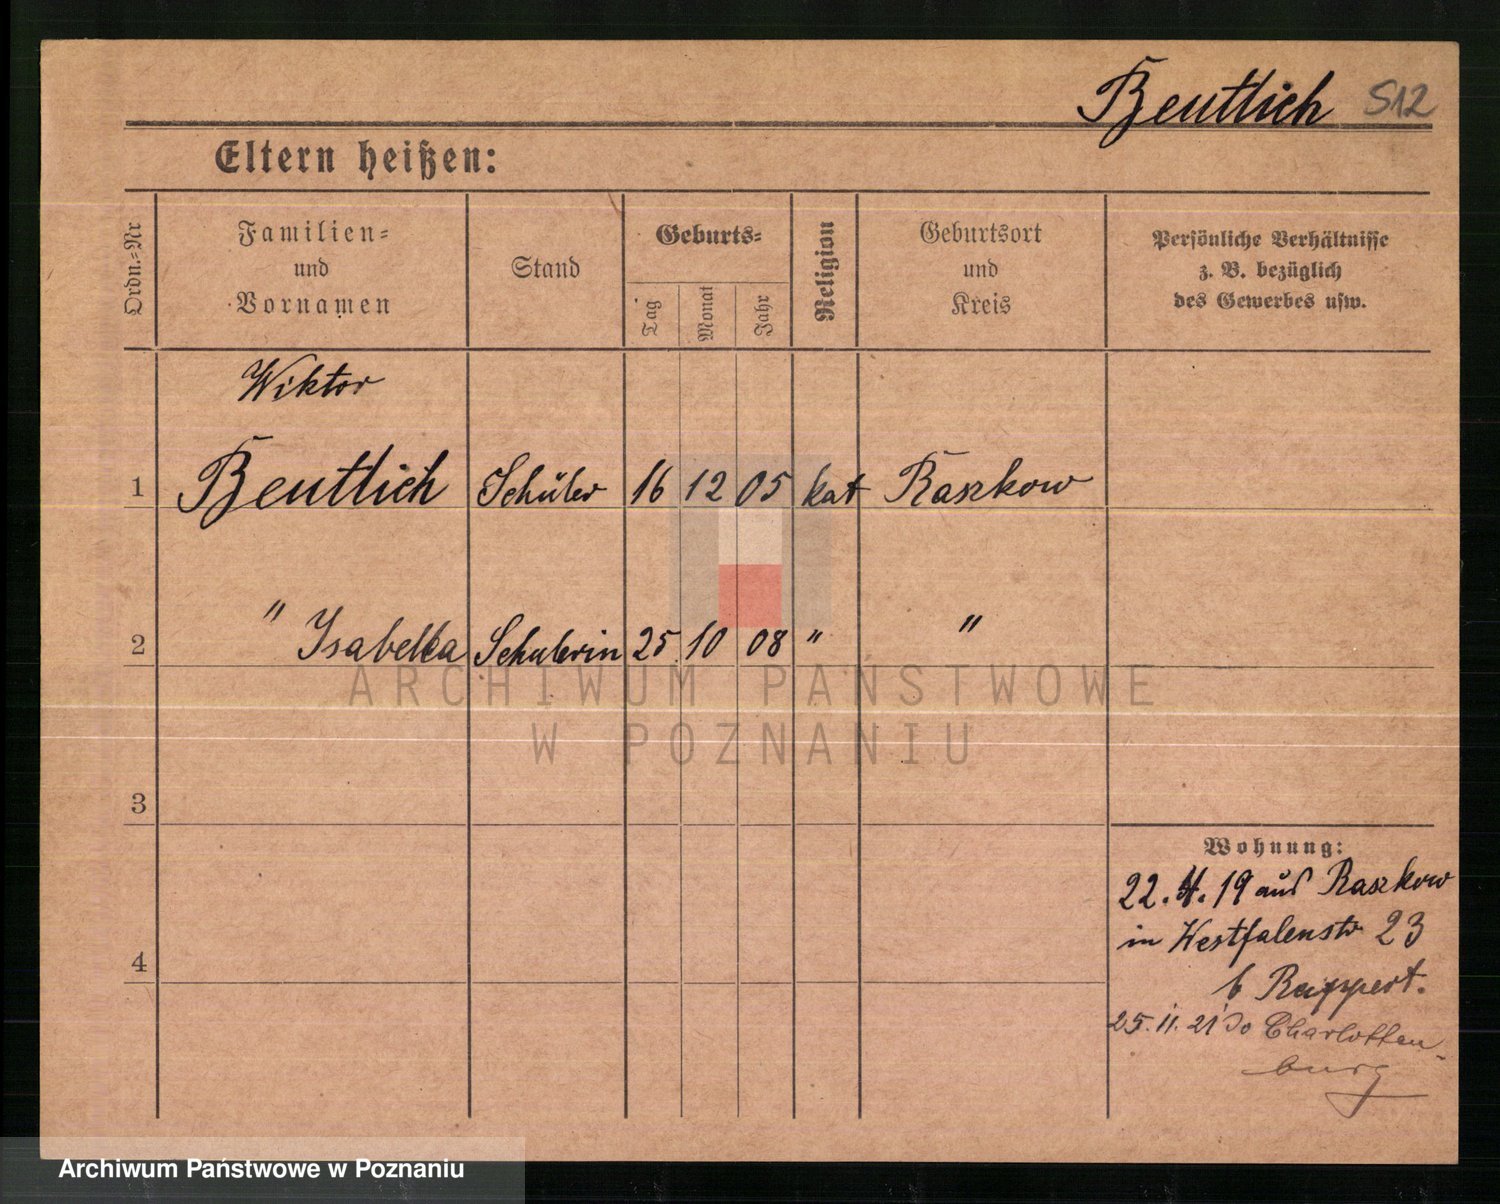 Beutlich S12
Eltern heißen:
Ordn.-Nr
Familien-
und
Vornamen
Stand
Geburts-
Tag
Monat
Jahr
Religion
Geburtsort
und
Kreis
Persönliche Verhältnisse
z. B. bezüglich
des Gewerbes usw.
Wiktor
1 Beutlich Schüler 16 12 05 kat Raszkow
2 " Isabella Schulerin 25 10 08 " "
ARCHIWUM PAŃSTWOWE
W POZNANIU
3
4
Wohnung:
22.4.19 aus Raszkow
in Westfalenstr 23
b Ruppert.
25.11.21 Charlotten-
burg
Archiwum Państwowe w Poznaniu